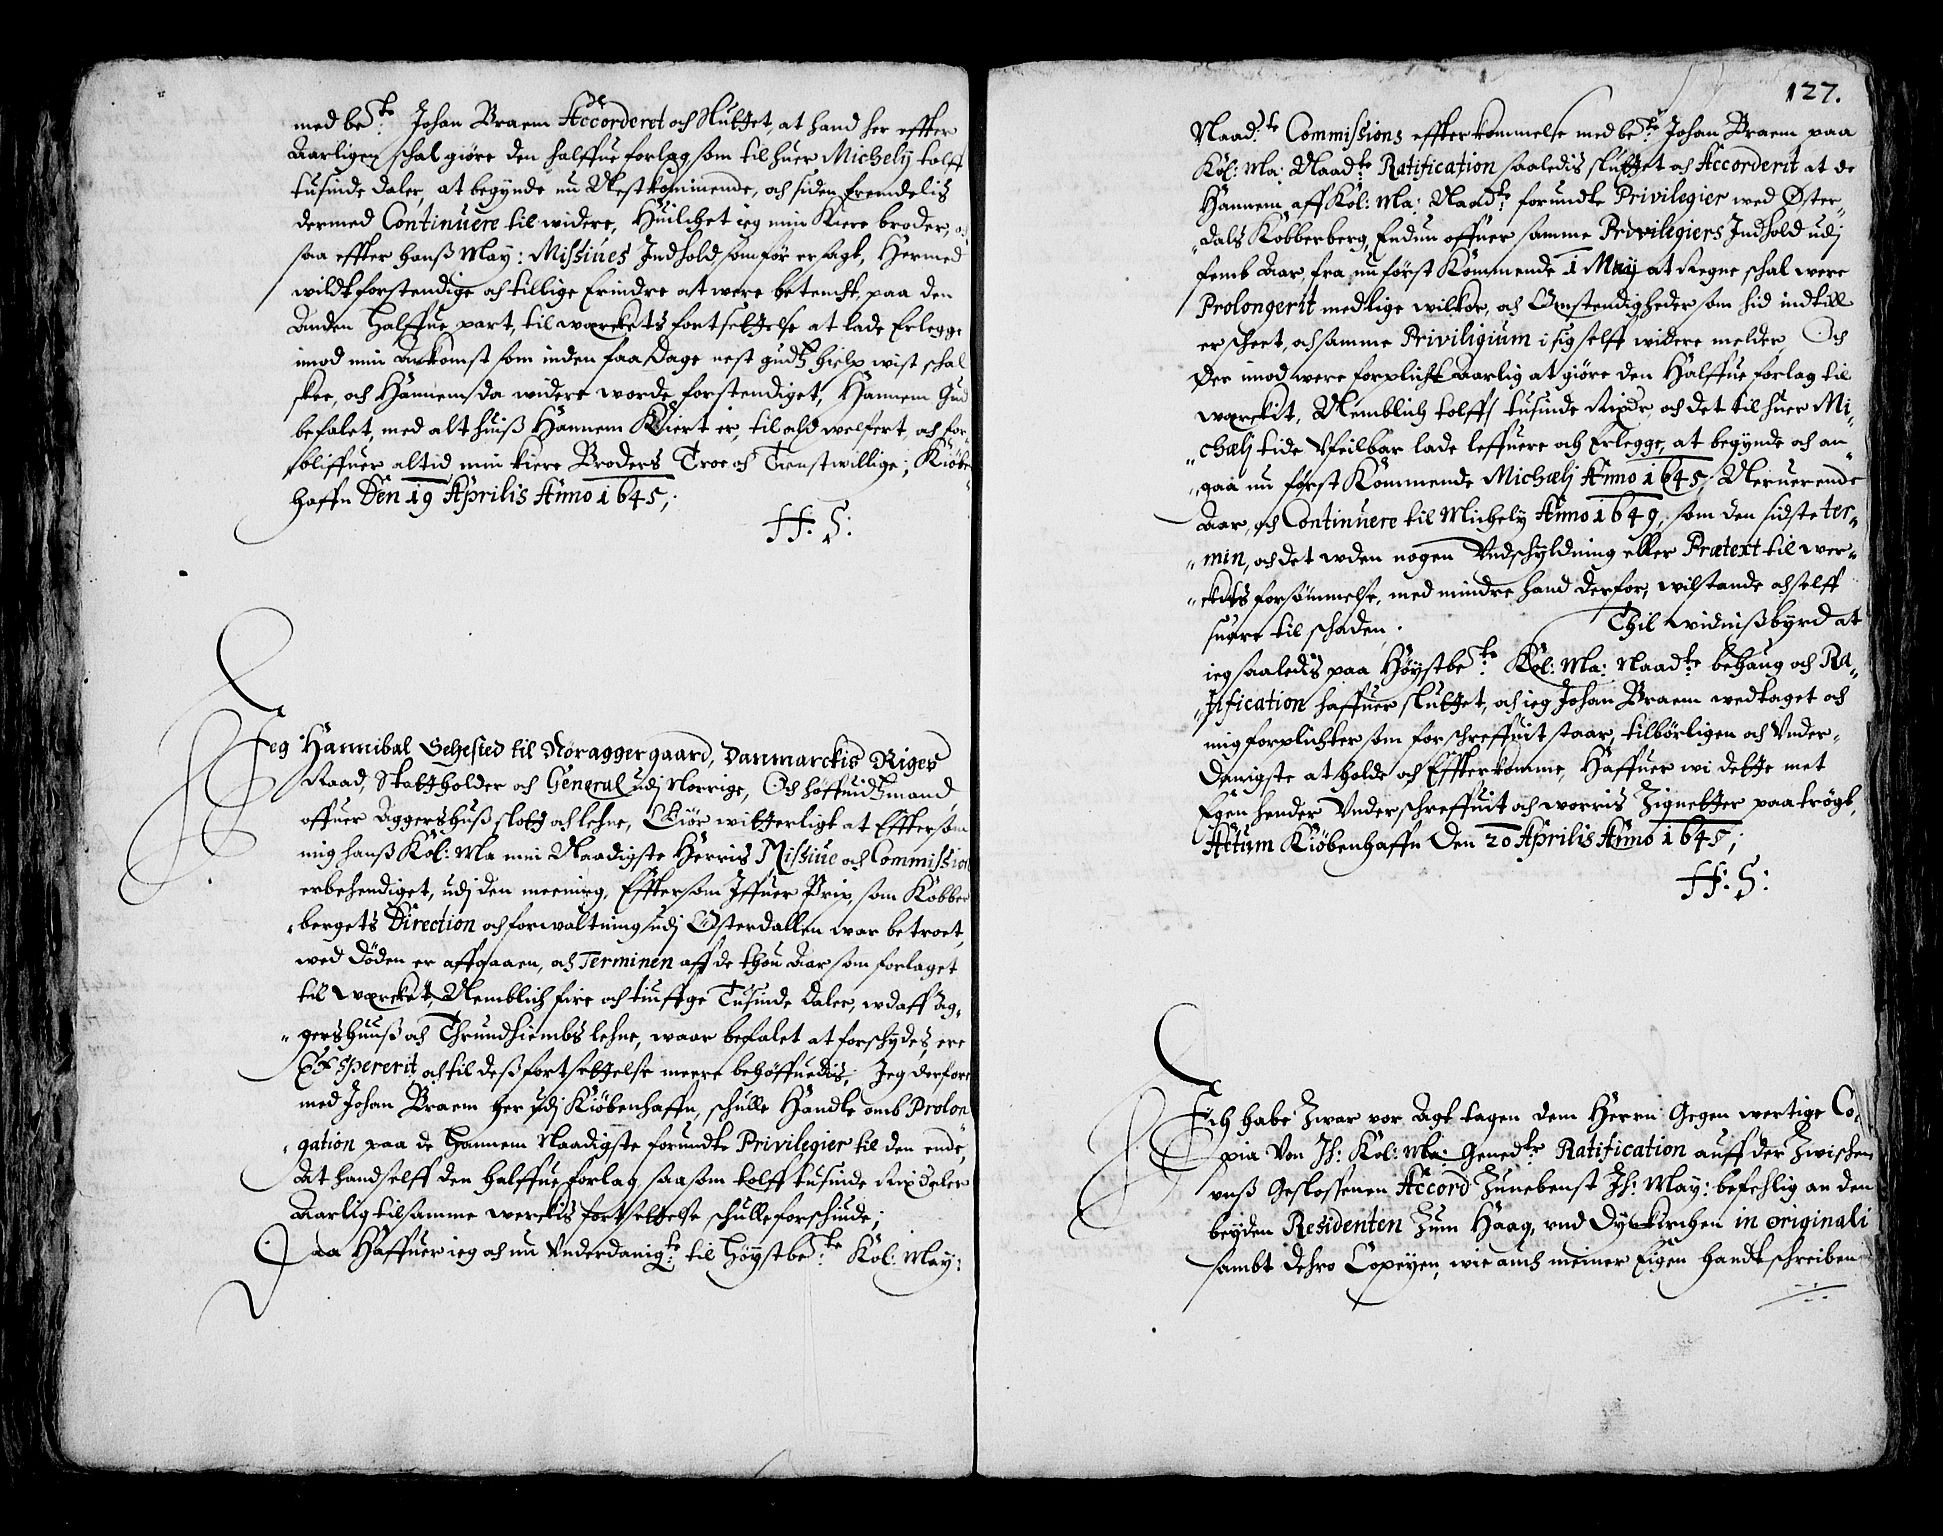 med be:te Johan Braem Accorderet och Sluttet, at hand her effter
Aarligen schal giøre den halffue forlag som til huer Michely tolff
tusinde daler, at begynde nu Nestkommende, och siden fremdelis
dermed Continuere til widere, Huilchet ieg min Kiere broder, och
saa effter hanß May: Missiues Indhold som før er sagt, Hermed
wildt forstendige och tillige Erindre at were betencht, paa den
Anden halffue part, til werckets fortsettelse at lade Erlegge
imod min Ankomst som inden faa Dage nest gudtz hielp wist schal
skee, och Hannem da widere worde forstendiget, Hannem Gud
befalet, med alt huiß Hannem Kiert er, til ald welfert, och for
bliffuer altid min kiere Broders Troe och Tienstwillige; Kiøbe
haffn Den 19 Aprilis Anno 1645;
H: S:
Jeg Hannibal Sehested til Nøraggergaard, Danmarckis Riges
Raad, Stattholder och General udj Norrige, Och høffuidtzmand
offuer Aggershuß slott och lehne, Giør witterligt at Efftersom
mig hanß Kol: Ma min Naadigste Herris Missiue och Commission
erbehendiget, udj den meening, Efftersom Iffuer Prip, som Kobber
bergets Direction och forwaltning udj Østerdallen war betroet,
wed Døden er affgaaen, och Terminen aff de thou Aar som forlaget
til wercket, Nemblich fire och tiuffge Tusinde daler, wdaff Ag-
gershuuß och Thrundhiembs lehne, waar befalet at forschydes, ere
Exspererit, och til deß fortsettelse meere behøffuedis, Jeg derfore
med Johan Braem her udj Kiøbenhaffn, schulle Handle omb Prolon
gation paa de Hannem Naadigste forundte Privilegier til den ende,
At hand selff den halffue forlag saasom tolff tusinde Rixdaler
Aarlig til samme werckis fortsettelse schulle forschiude;
Daa Haffuer ieg och nu Vnderdanig:te til Høystbe:te Kol: May:
127.
Naad:te Commissions effterkommelse med be:te Johan Braem paa
Kol: Ma: Naad:te Ratification saaledis sluttet och Accorderit at de
Hannem aff Kol: Ma: Naad:te forundte Privilegier wed Øster-
dals Kobberberg, Endnu offuer samme Privilegiers Indhold udj
femb Aar, fra nu først Kommende 1 May at Regne schal were
Prolongerit med lige wilkor, och Omstendigheder som hid indtill
er scheet, och samme Priviligium i sig selff widere melder, Och
Der imod were forplicht Aarlig at giøre den Halffue forlag til
werckit, Nemblich tolff tusinde Rixdr och det til huer Mi-
chælj tide Vfeilbar lade leffuere och Erlegge, at begynde och an
gaa nu først Kommende Michælj Anno 1645, Neruerende
Aar, och Continuere til Michely Anno 1649, som den sidste ter-
min, och det wden nogen Vndschyldning eller Prætext til wer-
ckits forsømmelse, med mindre hand derfor, wil stande och selff
suare til schaden. Thil widnißbyrd at
ieg saaledis paa Høystbe:te Kol: Ma: Naad:te behaug och Ra-
tification haffuer sluttet, och ieg Johan Braem wedtaget och
mig forplichter som forschreffuit staar, tilbørligen och Vnder-
danigste at holde och Effterkomme, Haffuer wi dette met
Egen hender Vnderschreffuit och worris Zignetter paatrøgt,
Actum Kiøbenhaffn Den 20 Aprilis Anno 1645;
H: S:
Ich habe Zwar vor Agt tagen dem Herrn Gegenwertige Co-
pia Von Jh: Kol: Ma: Gened:te Ratification auff der Zwischen
vnß Geslossenen Accord Zunebenst Jh: May: befehlig an den
beyden Residenten Zum Haag, vnd Dynkirchen in originali
sambt dehro Copeyen, wie auch meiner Eigen handt schreiben